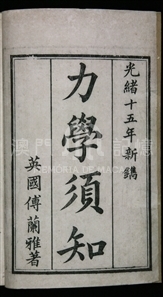 光緒十五年新鐫
力學須知
英國傅蘭雅著